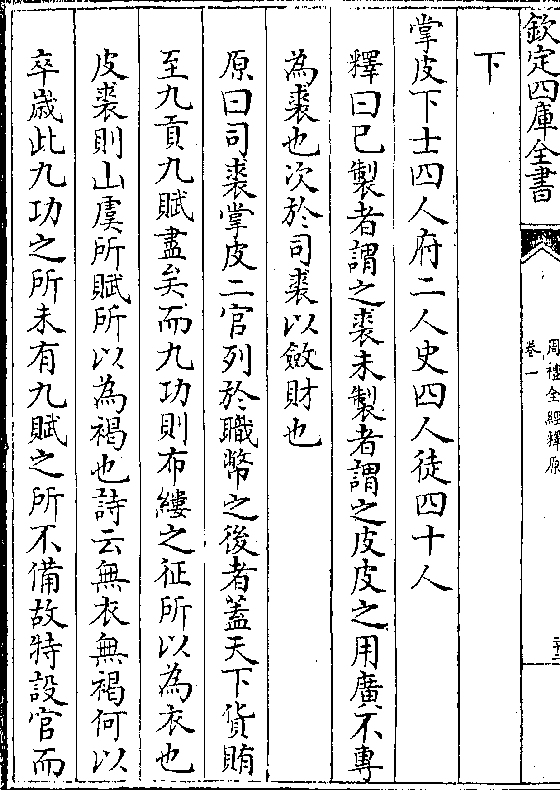 欽定四庫全書
周禮全經釋原
卷一
下
掌皮下士四人府二人史四人徒四十人
釋曰已製者謂之裘未製者謂之皮皮之用廣不專
為裘也次於司裘以斂財也
原曰司裘掌皮二官列於職幣之後者蓋天下貨賄
至九貢九賦盡矣而九功則布縷之征所以為衣也
皮裘則山虞所賦所以為褐也詩云無衣無褐何以
卒歲此九功之所未有九賦之所不備故特設官而